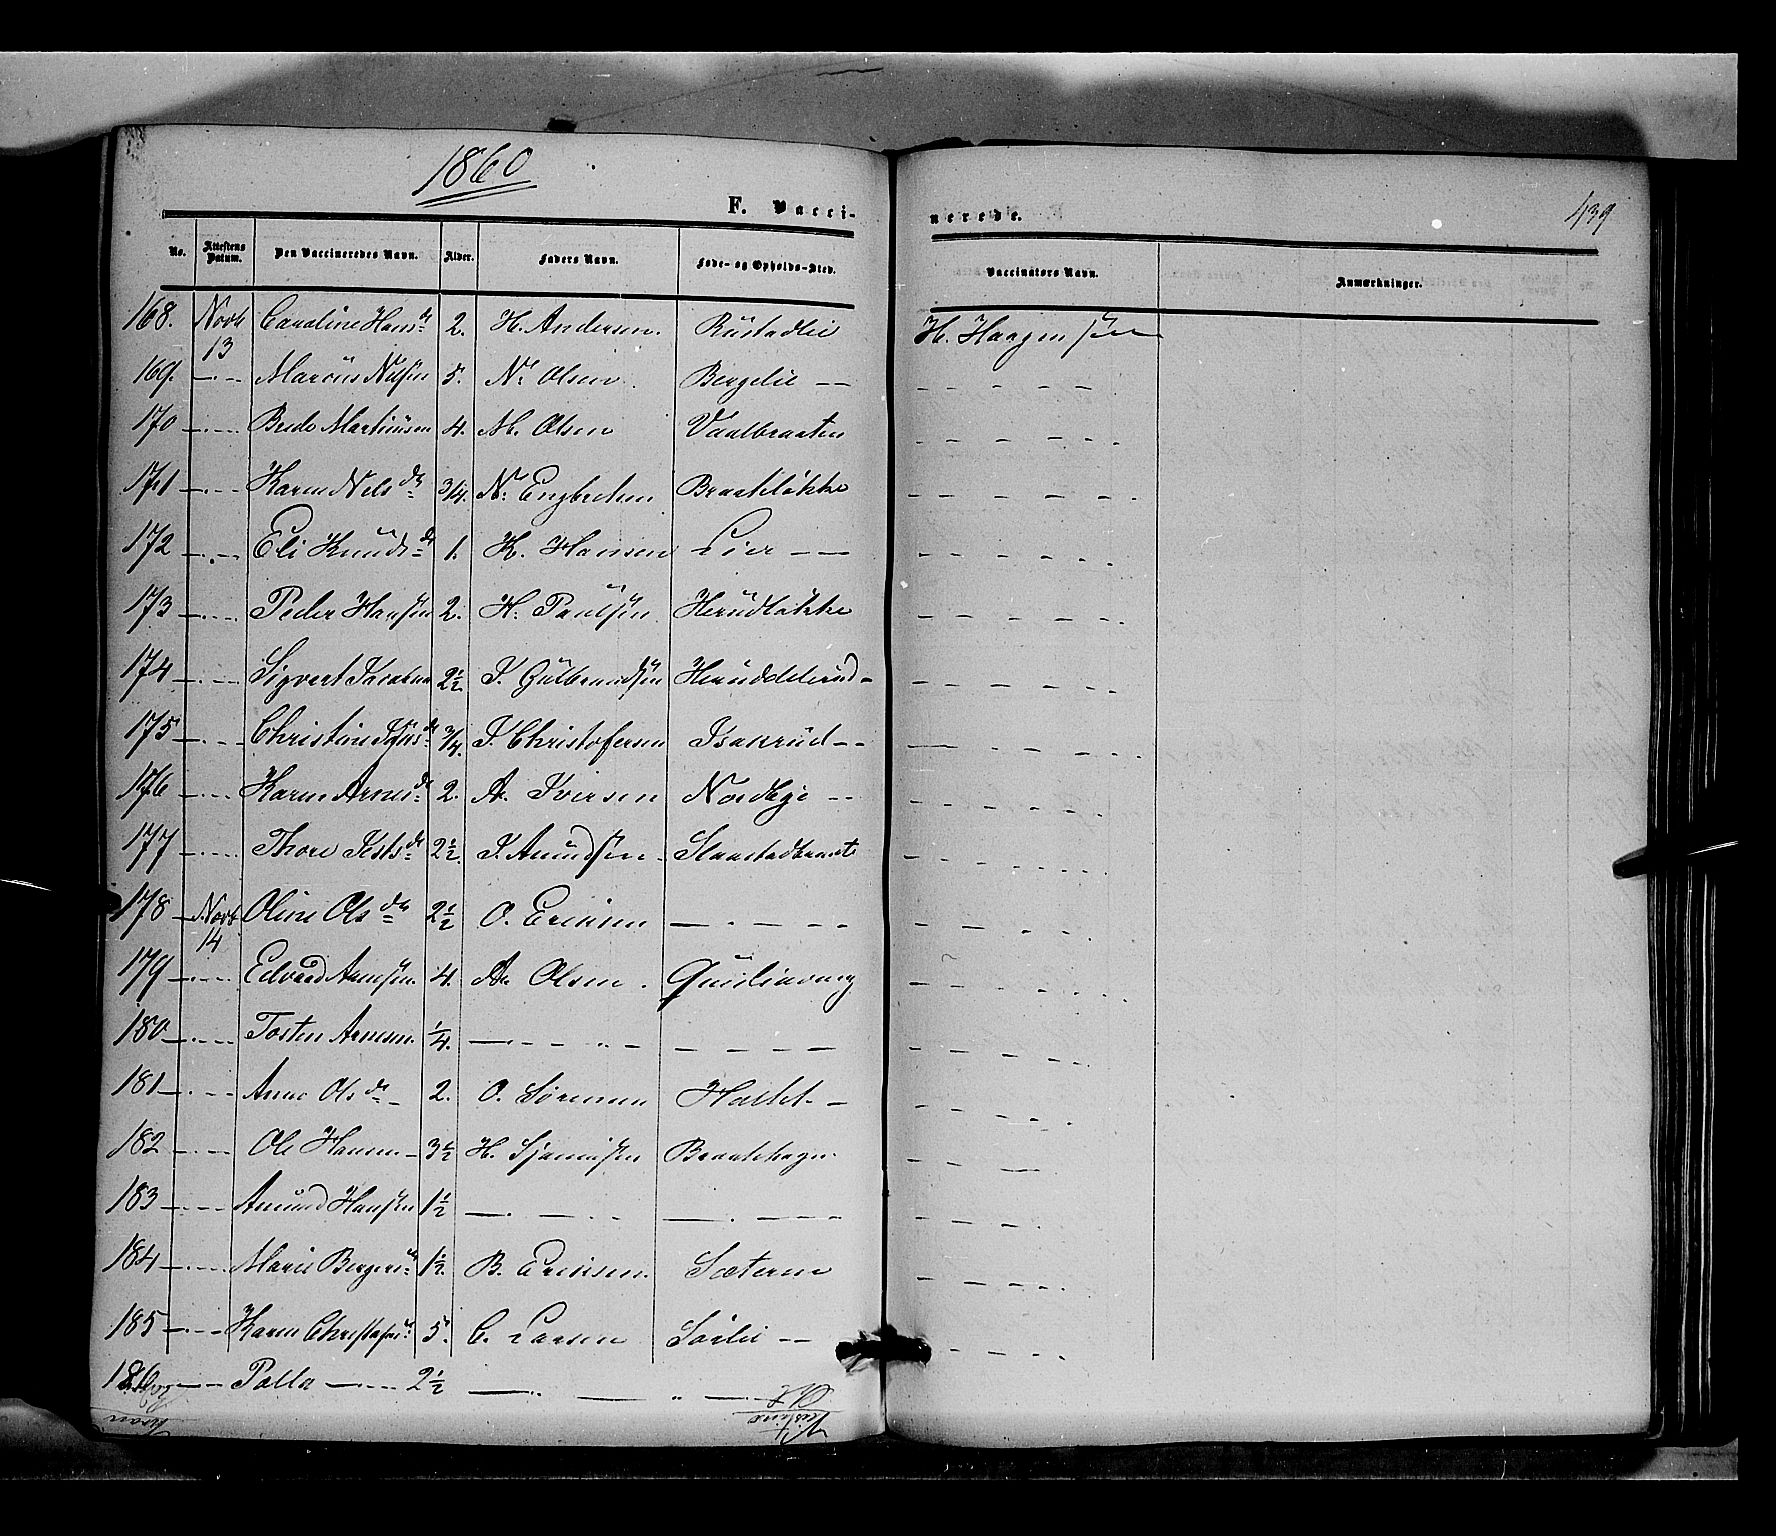 1860
F. Vacci-
nerede.
439
No.
Attestens Datum.
Den Vaccineredes Navn.
Alder.
Faders Navn.
Føde- og Opholds-Sted.
Vaccinators Navn.
Anmærkninger.
168. Novb 13 Caroline Hansdr 2. H. Andersen. Rustadlie H. Haagensen
169. — Marcus Nilsen 5. N. Olsen. Bergelie — —
170 — Brede Martinusen 4. M. Olsen Vaalbraaten
171 — Karen Nelsdr 3/4. N. Engbretsen Braateløkke
172 — Eli Knudsdr 1. K. Hansen Lier — —
173 — Peder Hansen 2. H. Paulsen Herudløkke
174 — Sigvert Jacobsen 2½. J. Gulbrandsen
175 — Christine 3/4. J. Christofersen Isakrud — —
176 — Karen Arnesdr 2. A. Iversen Nordbye — —
177 — Thore 2½. J. Amundsen Slaastadbraat
178 — Novb 14 Oline Olsdr 2½ O. Eriksen — — — —
179 — Edvard Arnesen. 4. A. Olsen.
180 — Tosten Arnesen. ¼. — — — — — —
181 — Anne Olsdr — 2. O. Sørensen Holtet —
182 — Ole Hansen — 3½ H. Braatehagen.
183 — Amund Hansen 1½ — — — — — —
184 — Marie 1½. B. Eriksen. Sæteren
185 — Karen Christofersdr 5. C. Larsen Sørlie — —
186 — Palla — 2½ — „ — „ —